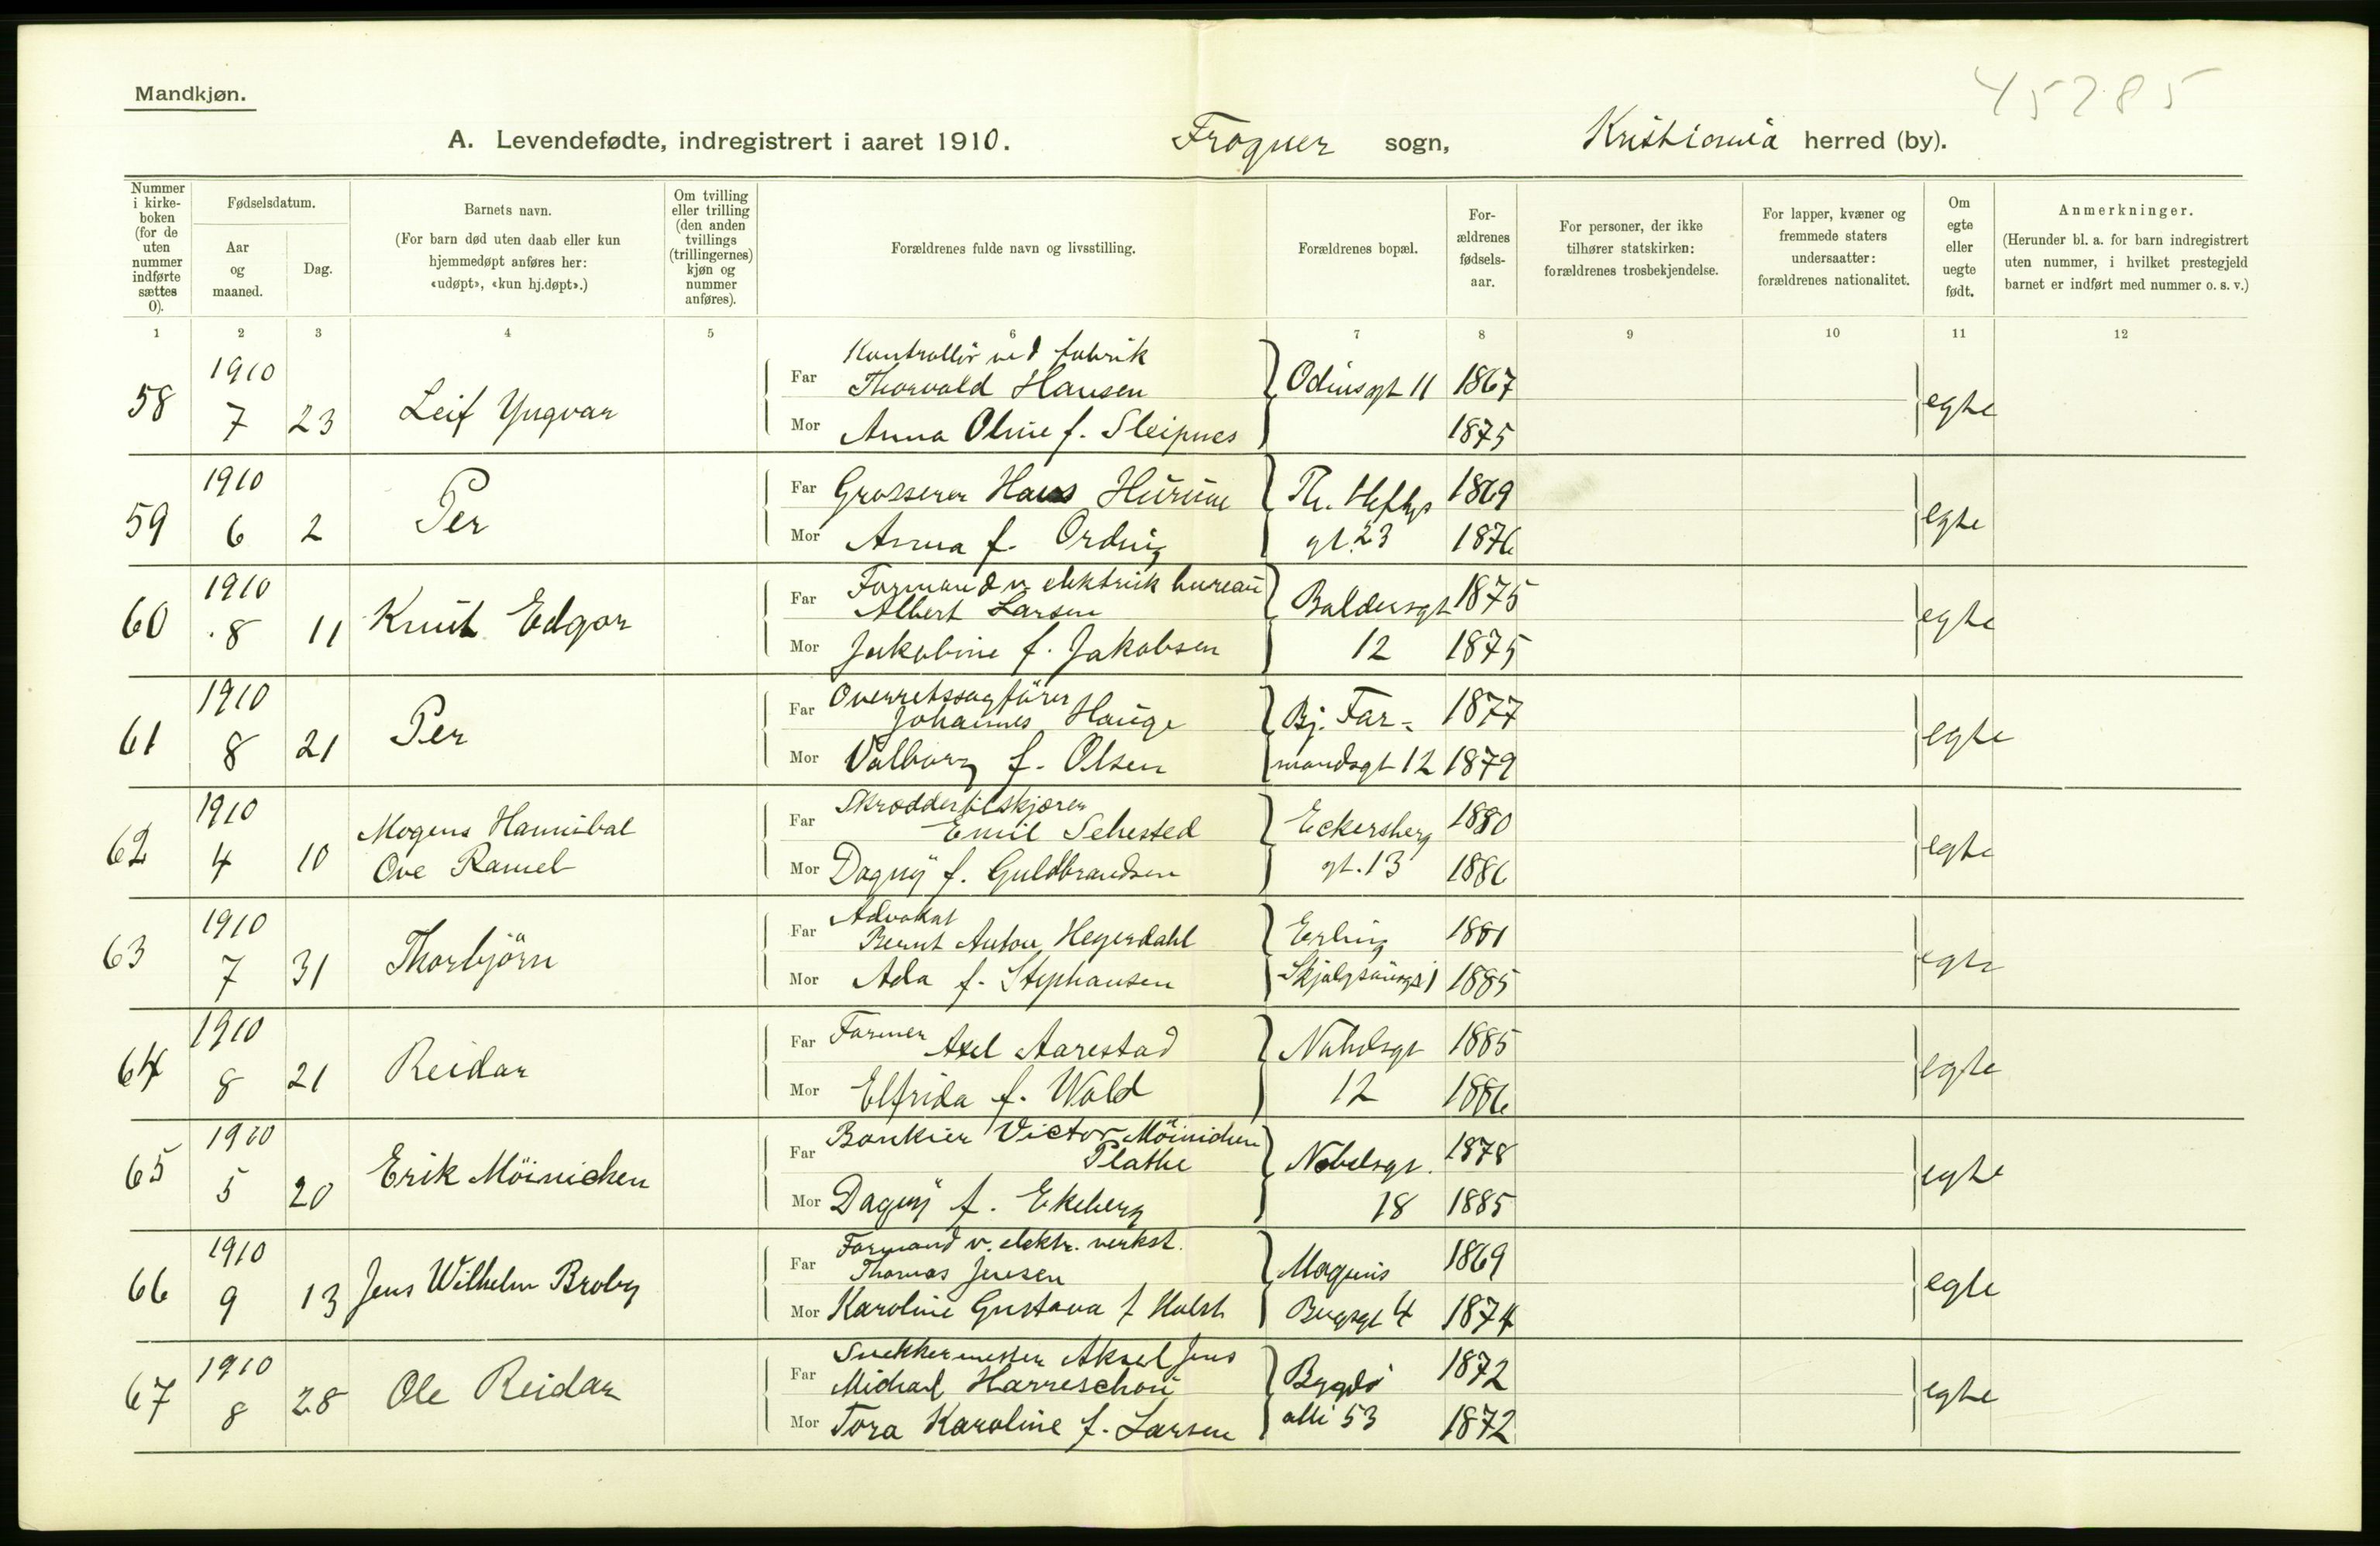 Mandkjøn.
45285
A. Levendefødte, indregistrert i aaret 1910. Frogner sogn, Kristiania herred (by).
Nummer i kirke-boken (for de uten nummer indførte sættes 0).
Fødselsdatum.
Aar og maaned.
Dag.
Barnets navn.
(For barn død uten daab eller kun hjemmedøpt anføres her: «udøpt», «kun hj.døpt».)
Om tvilling eller trilling (den anden tvillings (trillingernes) kjøn og nummer anføres).
Forældrenes fulde navn og livsstilling.
Forældrenes bopæl.
For-ældrenes fødsels-aar.
For personer, der ikke tilhører statskirken: forældrenes trosbekjendelse.
For lapper, kvæner og fremmede staters undersaatter: forældrenes nationalitet.
Om egte eller uegte født.
Anmerkninger.
(Herunder bl. a. for barn indregistrert uten nummer, i hvilket prestegjeld barnet er indført med nummer o. s. v.)
1 2 3 4 5 6 7 8 9 10 11 12
58 1910 7 23 Leif Yngvar
Far Kontrollör ved fabrik Thorvald Hansen Odinsgt 11 1867 egte
Mor Anna Oline f. Sleipnes 1875
59 1910 6 2 Per
Far Grosserer Hans Hurum Th. Heftys 1869 egte
Mor Anna f. Ording gt. 23 1876
60 1910 8 11 Knut Edgar
Far Formand v. elektrisk bureau Albert Larsen Baldersgt 1875 egte
Mor Jakobine f. Jakobsen 12 1875
61 1910 8 21 Per
Far Overretssagförer Johannes Hauge Bj. Far- 1877 egte
Mor Valborg f. Olsen mandsgt 12 1879
62 1910 4 10 Mogens Hannibal Ove Ramel
Far Skræddertilskjærer Emil Sehested Eckersberg 1880 egte
Mor Dagny f. Guldbrandsen gt. 13 1886
63 1910 7 31 Thorbjörn
Far Advokat Bernt Anton Heyerdahl Erling 1881 egte
Mor Ada f. Stephansen 1885
64 1910 8 21 Reidar
Far Farmer Axel Aarestad Nobelsgt 1885 egte
Mor Elfrida f. Wold 12 1886
65 1910 5 20 Erik Möinichen
Far Bankier Victor Möinichen Plathe Nobelsgt. 1878 egte
Mor Dagny f. Ekeberg 18 1885
66 1910 9 13 Jens Wilhelm Broby
Far Formand v. elektr. verkst. Thomas Jensen Magnus 1869 egte
Mor Karoline Gustava f Holst Bergsgt 4 1874
67 1910 8 28 Ole Reidar
Far Snekkermester Aksel Jens Michael Harreschou Bygdö 1872 egte
Mor Tora Karoline f. Larsen alle 53 1872